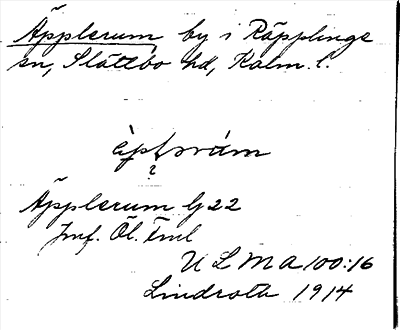 Äpplerum by i Räpplinge
sn, Slättbo hd, Kalm. l.
Äpplerum G22
Jmf. Öl. Tml
ULMA 100:16
Lindroth 1914